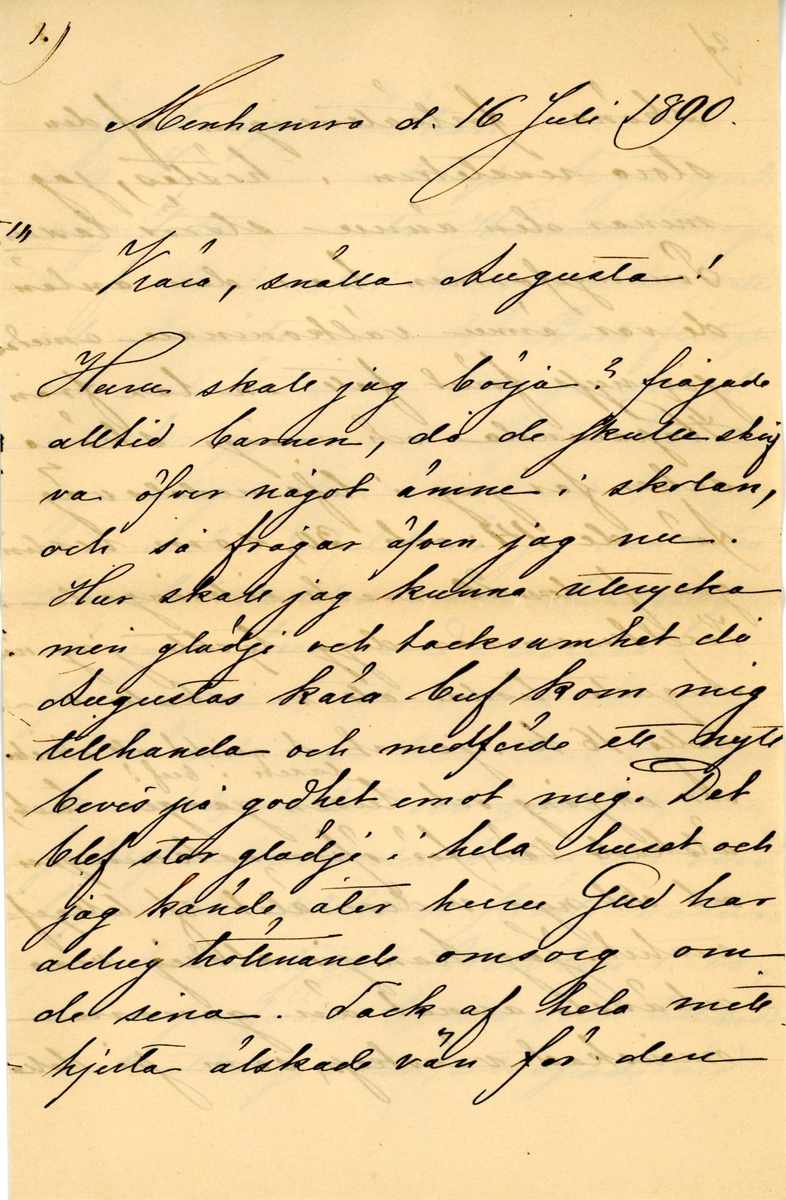 1.)
Menhamra d. 16 Juli 1890.
Kära, snälla Augusta!
Huru skall jag börja? frågade
alltid barnen, då de skulle skrif
va öfver något ämne i skolan,
och så frågar äfven jag nu.
Hur skall jag kunna uttrycka
min glädje och tacksamhet då
Augustas kära bref kom mig
tillhanda och medförde ett nytt
bevis på godhet emot mig. Det
blef stor glädje i hela huset och
jag kände åter huru Gud har
aldrig tröttnande omsorg om
de sina. Tack af hela mitt
hjerta älskade vän för den